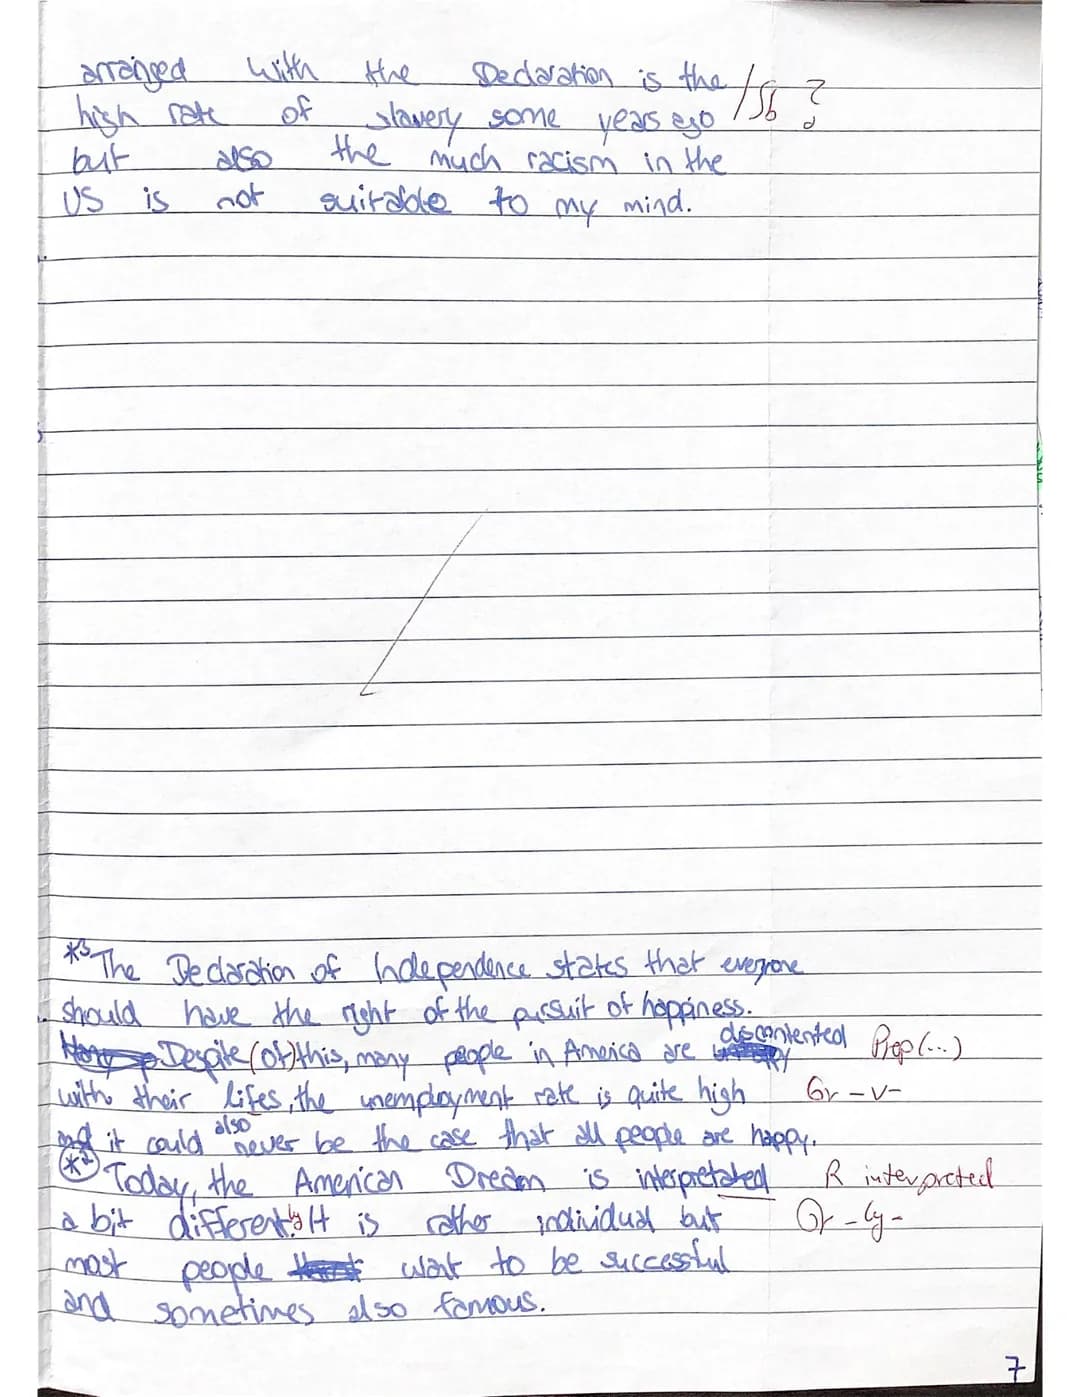 arranged with the Declaration is the /Sb ?
high rate of slavery some years ago
but also the much racism in the
US is not suitable to my mind.
*3 The Declaration of Independence states that everyone
should have the right of the pursuit of happiness.
Despite (of) this, many people in America are discontented Prep (...)
with their lifes, the unemployment rate is quite high Gr -v-
and it could also never be the case that all people are happy.
*2 Today, the American Dream is interpretated R interpreted
a bit differently. It is rather individual but Gr -ly-
most people want to be successful
and sometimes also famous.
7